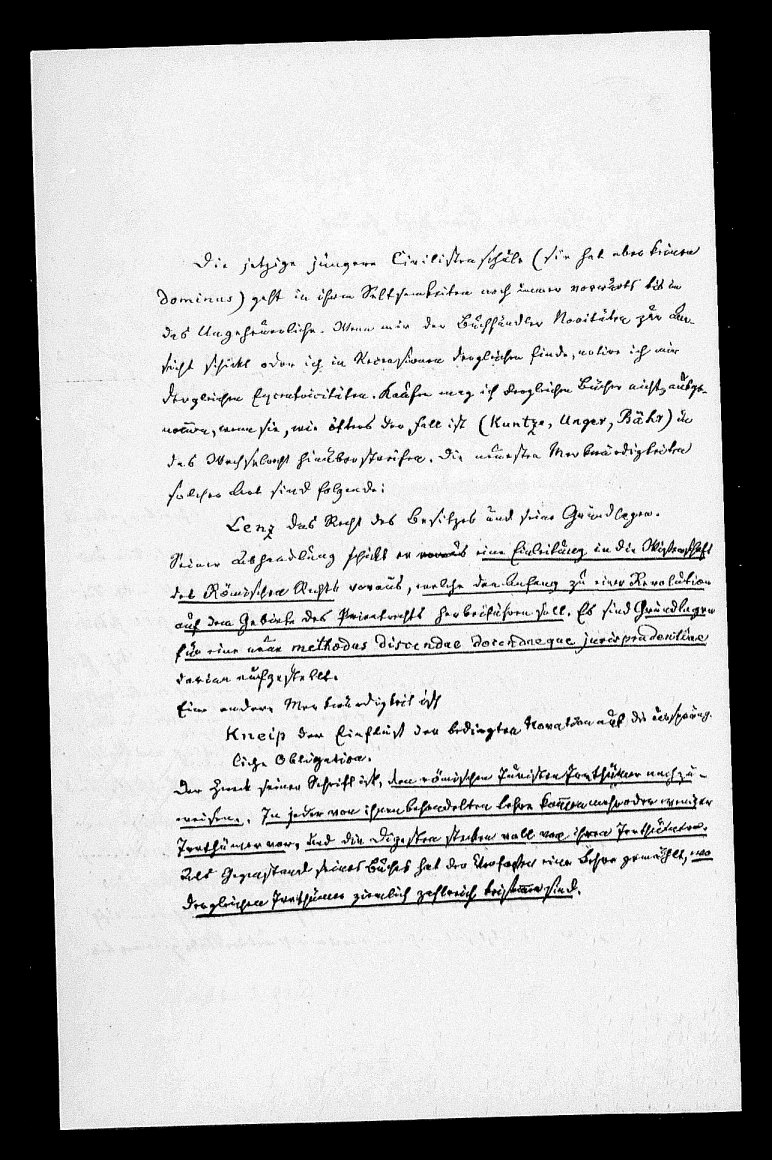 Die jetzige jüngere Civilistenschule (sie hat aber keinen
dominus) geht in ihren Seltsamkeiten noch immer vorwärts bis in
das Ungeheuerliche. Wenn mir der Buchhändler Novitäten zur An-
sicht schickt oder ich in Recensionen dergleichen finde, notire ich mir
dergleichen Excentricitäten. Kaufen mag ich dergleichen Bücher nicht, ausge-
nommen, wenn sie, wie öfters der Fall ist (Kuntze, Unger, Bähr) in
das Wechselrecht hinüberstreifen. Die neuesten Merkwürdigkeiten
solcher Art sind folgende:
Lenz das Recht des Besitzes und seine Grundlagen.
Seiner Abhandlung schickt er voraus eine Einleitung in die Wissenschaft
des Römischen Rechts voraus, welche den Anfang zu einer Revolution
auf dem Gebiete des Privatrechts herbeiführen soll. Es sind Grundlagen
für eine neue methodus discendae docendaeque jurisprudentiae
darin aufgestellt.
Eine andere Merkwürdigkeit ist
Kneip der Einfluß der bedingten Novation auf die ursprüng-
liche Obligation.
Der Zweck seiner Schrift ist, den römischen Juristen Irrthümer nachzu-
weisen. In jeder von ihnen behandelten Lehre kommen mehr oder weniger
Irrthümer vor, und die Digesten stecken voll von ihren Irrthümern.
Als Gegenstand seines Buches hat der Verfasser eine Lehre gewählt, wo
dergleichen Irrthümer ziemlich zahlreich beisammen sind.